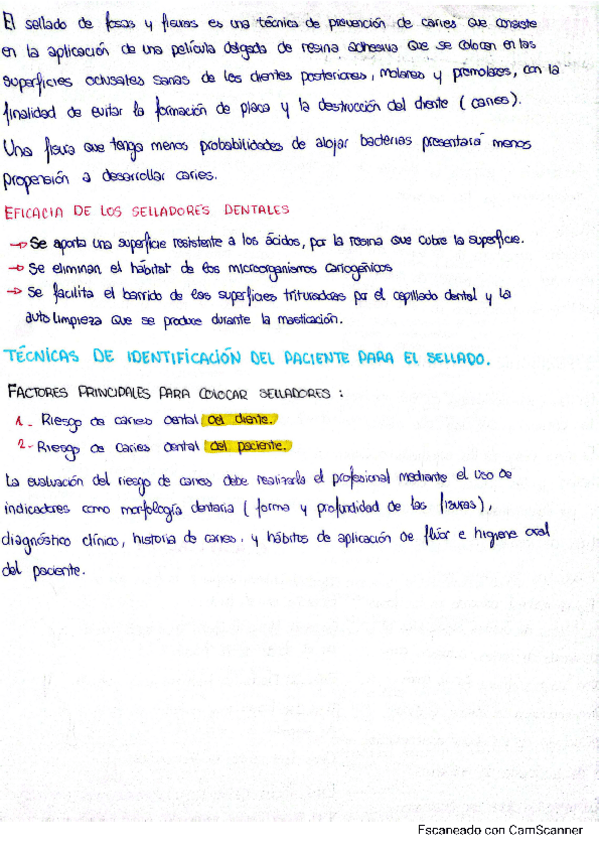 El sellado de fosas y fisuras es una técnica de prevención de caries que consiste
en la aplicación de una película delgada de resina adhesiva que se colocan en las
superficies oclusales sanas de los dientes posteriores, molares y premolares, con la
finalidad de evitar la formación de placa y la destrucción del diente (caries).
Una fisura que tenga menos probabilidades de alojar bacterias presentará menos
propensión a desarrollar caries.
EFICACIA DE LOS SELLADORES DENTALES
→ Se aporta una superficie resistente a los ácidos, por la resina que cubre la superficie.
→ Se eliminan el hábitat de los microorganismos cariogénicos
→ Se facilita el barrido de las superficies trituradoras por el cepillado dental y la
autolimpieza que se produce durante la masticación.
TÉCNICAS DE IDENTIFICACIÓN DEL PACIENTE PARA EL SELLADO.
FACTORES PRINCIPALES PARA COLOCAR SELLADORES :
1.- Riesgo de caries dental del diente.
2.- Riesgo de caries dental del paciente.
La evaluación del riesgo de caries debe realizarla el profesional mediante el uso de
indicadores como morfología dentaria (forma y profundidad de las fisuras),
diagnóstico clínico, historia de caries, y hábitos de aplicación de flúor e higiene oral
del paciente.
Escaneado con CamScanner